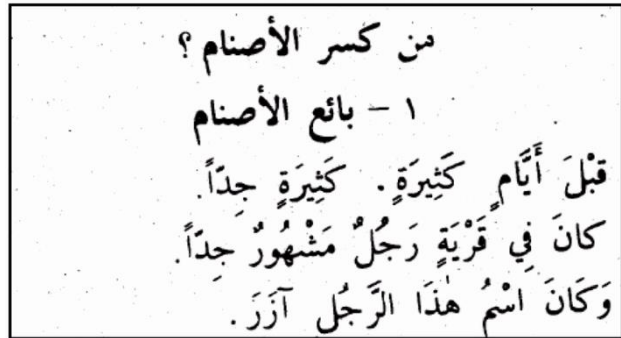 من كسر الأصنام ؟
١ – بائع الأصنام
قبْلَ أَيَّامٍ كَثِيرَةٍ . كَثِيرَةٍ جِدّاً .
كانَ فِي قَرْيَةٍ رَجُلٌ مَشْهُورٌ جِدّاً .
وَكَانَ اسْمُ هٰذَا الرَّجُلِ آزَرَ .